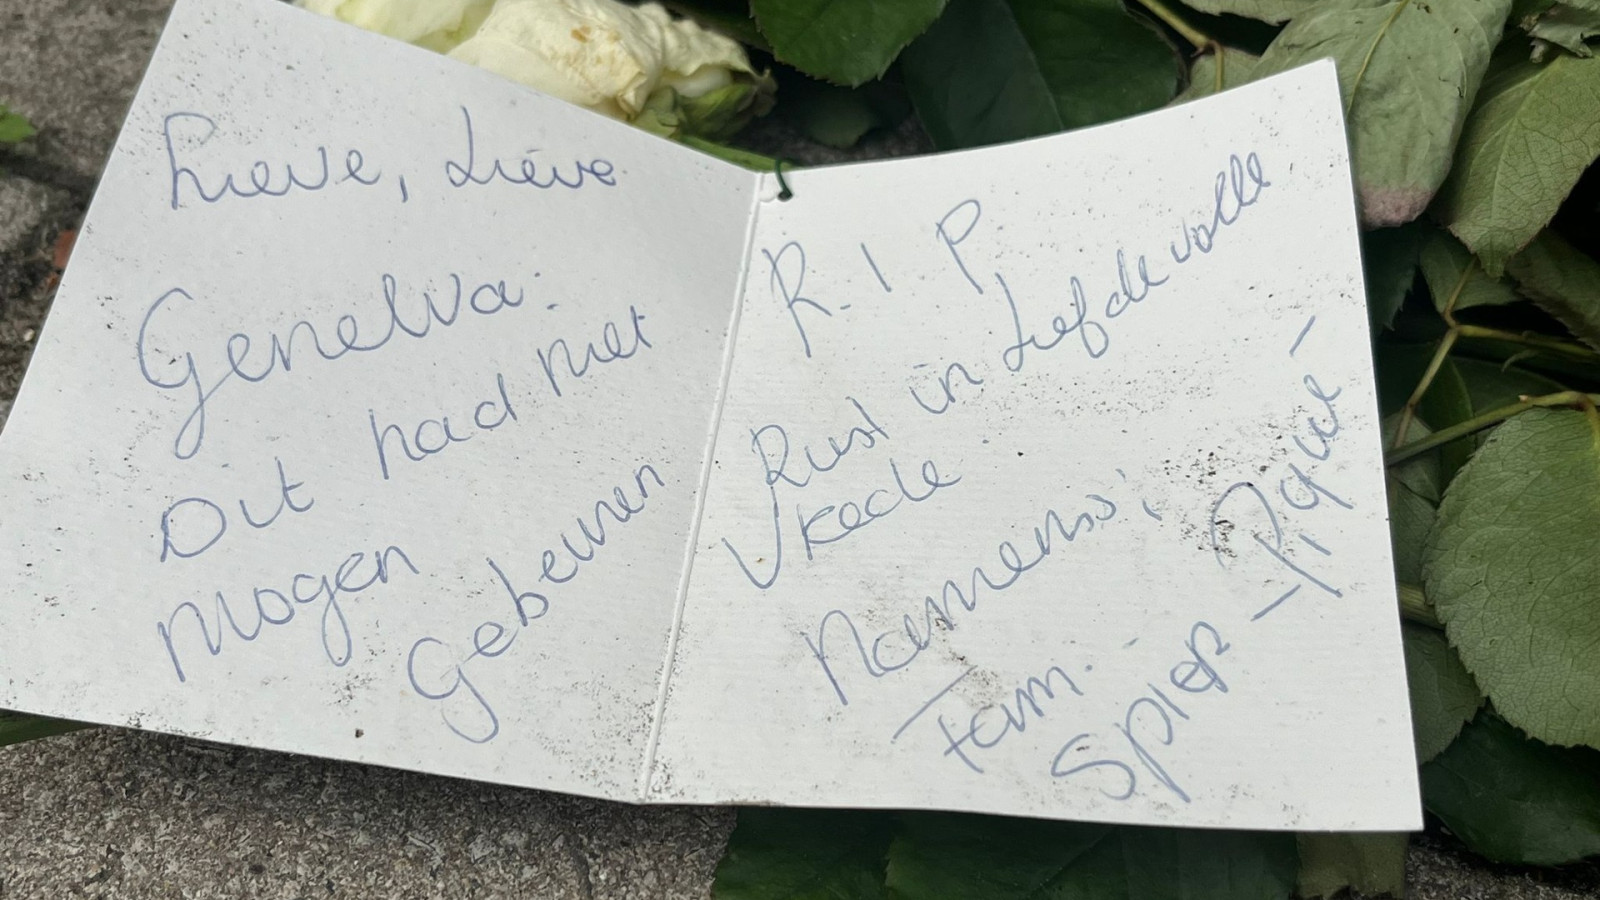 Lieve, Lieve
Genelva.
Dit had niet
mogen
Gebeuren
R.I P
Rust in Liefdevolle
Vrede
Namens;
Fam.
Spier - Pique -